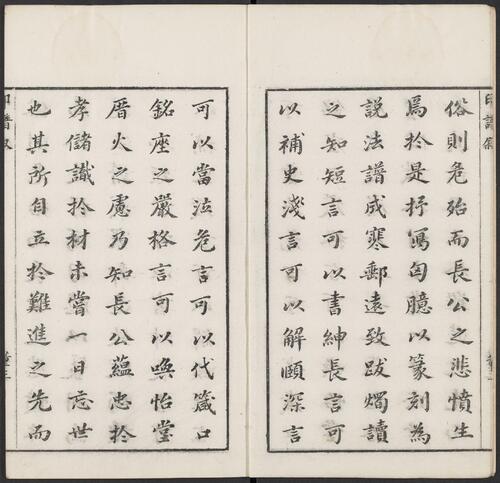 俗則危殆而長公之悲憤生
焉於是抒寫匈臆以篆刻為
說法譜成寒郵遠致跋燭讀
之知短言可以書紳長言可
以補史淺言可以解頤深言
可以當泣危言可以代箴口
銘座之嚴格言可以喚怡堂
厝火之慮乃知長公蘊忠於
孝儲識於材未嘗一日忘世
也其所自立於難進之先而